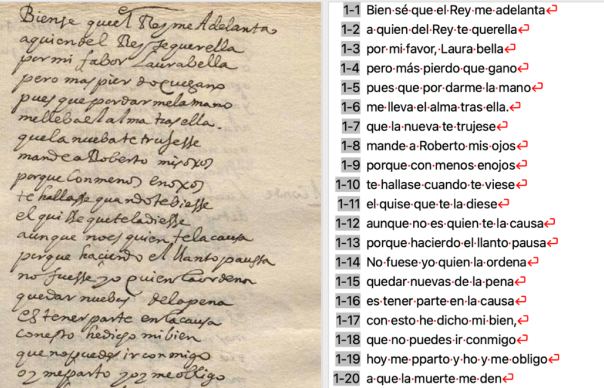 Biense queel Rey me Adelanta
aquiendel Rey tequerella
por mi fabor Laurabella
pero mas pierdo quegano
pues que pordarmelamano
mellebaelalma trasella.
quelanuebate trujesse
mandea Roberto misoxos
porque Conmenos enoxos
te hallasse quandotebiesse
el quisse queteladiesse
aunque noes quien telacausa
porque haciendo el llanto paussa
no fuesse yo quien laordena
quedar nuebas delapena
es tener parte enlacausa
conesto hedicho mibien
que nopuedes irconmigo
oy meparto yoy meobligo
1-1 Bien sé que el Rey me adelanta
1-2 a quien del Rey te querella
1-3 por mi favor, Laura bella
1-4 pero más pierdo que gano
1-5 pues que por darme la mano
1-6 me lleva el alma tras ella.
1-7 que la nueva te trujese
1-8 mande a Roberto mis ojos
1-9 porque con menos enojos
1-10 te hallase cuando te viese
1-11 el quise que te la diese
1-12 aunque no es quien te la causa
1-13 porque hacierdo el llanto pausa
1-14 No fuese yo quien la ordena
1-15 quedar nuevas de la pena
1-16 es tener parte en la causa
1-17 con esto he dicho mi bien,
1-18 que no puedes ir conmigo
1-19 hoy me pparto y ho y me obligo
1-20 a que la muerte me den